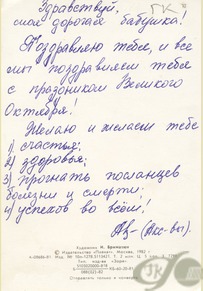 Здравствуй,
моя дорогая бабушка!
Поздравляю тебя, и все
мы поздравляем тебя
с праздником Великого
Октября!
Желаю и желаем тебе
1) счастья;
2) здоровья;
3) прогнать посланцев
болезни и смерти;
4) успехов во всём!
Художник И.
Издательство «Плакат». Москва, 1982 г.
Отправлять только в конверте